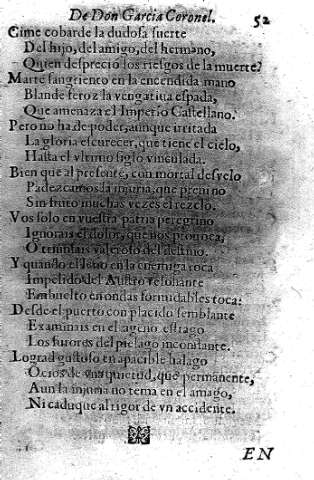 De Don Garcia Coronel. 52
Gime cobarde la dudosa suerte
Del hijo, del amigo, del hermano,
Quien despreciò los riesgos de la muerte?
Marte sangriento en la encendida mano
Blande feroz la vengatiua espada,
Que amenaza el Imperio Castellano.
Pero no ha de poder, aunque irritada
La gloria escurecer, que tiene el cielo,
Hasta el vltimo siglo vinculada.
Bien que al presente, con mortal desvelo
Padezcamos la injuria, que preuino
Sin fruto muchas vezes el rezelo.
Vos solo en vuestra patria peregrino
Ignorais el dolor, que nos prouoca,
O triunfais valeroso del destino.
Y quando el leño en la enemiga roca
Impelido del Austro resonante
Embuelto en ondas formidables toca:
Desde el puerto con placido semblante
Examinais en el ageno estrago
Los furores del pielago inconstante.
Lograd gustoso en apacible halago
Ocios de vna quietud, que permanente,
Aun la injuria no tema en el amago,
Ni caduque al rigor de vn accidente.
EN